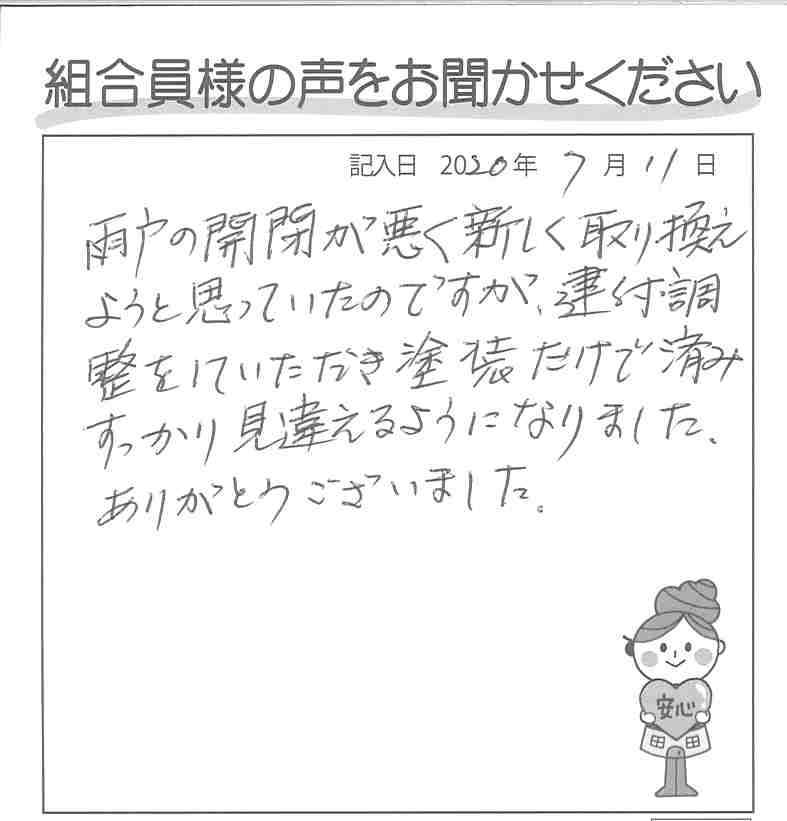 組合員様の声をお聞かせください
記入日 2020年 7月 11日
雨戸の開閉が悪く新しく取り換え
ようと思っていたのですが、建付調
整をしていただき塗装だけで済み
すっかり見違えるようになりました、
ありがとうございました。
安心